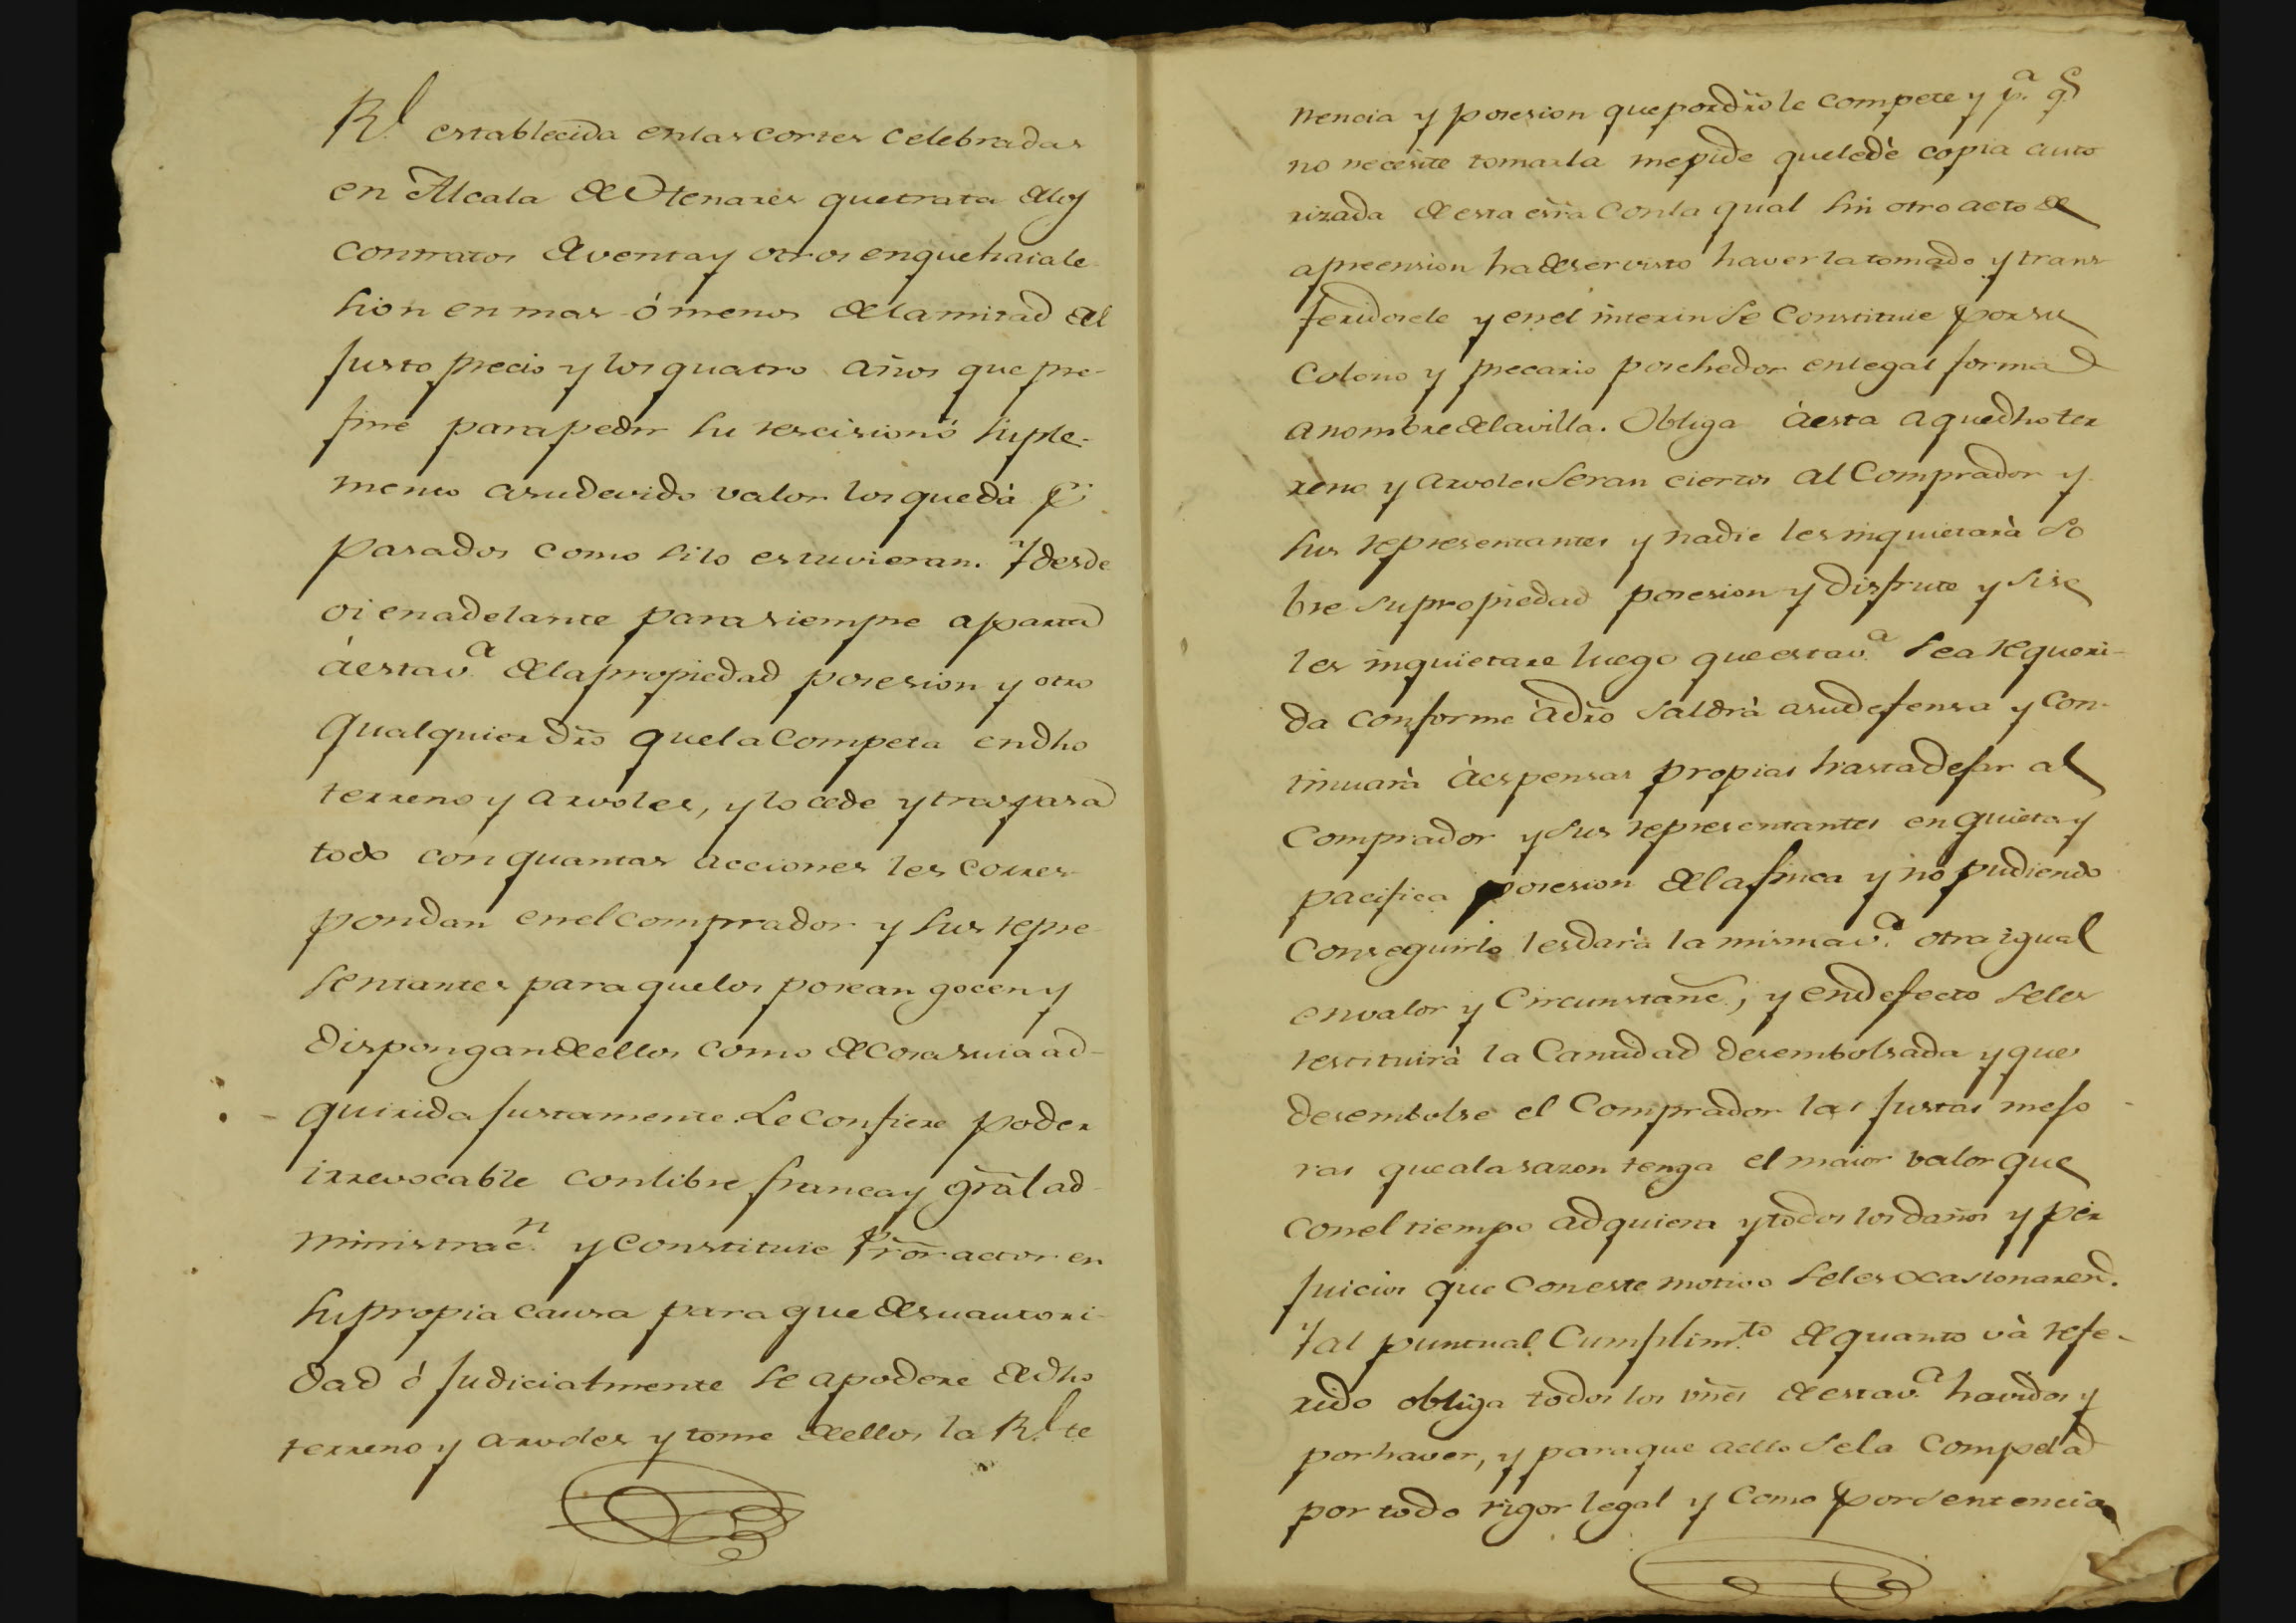 Rl. establecida en las cortes celebradas
en Alcala de Henares que trata de los
contratos de venta y otros en que haia le
sion en mas ó menos de la mitad del
justo precio y los quatro años que pre-
fine para pedir su rescision ó suple-
mento a su devido valor los que dà pr.
pasados como si lo estuvieran. Y desde
oi en adelante para siempre aparta
á esta va. de la propiedad posesion y otro
qualquier dr̃o que la competa en dho
terreno y arvoles, y lo cede y traspasa
todo con quantas acciones les corres-
pondan en el comprador y sus repre-
sentantes para que los posean gocen y
dispongan de ellos como de cosa suia ad-
quirida justamente. Le confiere poder
irrevocable con libre franca y gr̃al ad-
ministracn. y constituie Pr̃or actor en
su propia causa para que de su autori-
dad ó judicialmente se apodere de dho
terreno y arvoles y tome de ellos la Rl. te
nencia y posesion que por dr̃o le compete y pa. qe.
no necesite tomarla me pide que le dè copia auto
rizada de esta esr̃a con la qual sin otro acto de
apreension ha de ser visto haverla tomado y trans-
feridosele y en el interin se constituie por su
colono y precario posehedor en legal forma
a nombre de la villa. Obliga à esta a que dho ter
reno y arvoles seran ciertos al Comprador y
sus representantes y nadie les inquietarà so
bre su propiedad posesion y disfrute y si se
les inquietare luego que esta va. sea requeri-
da conforme à dr̃o saldrà a su defensa y con-
tinuarà à espensas propias hasta dejar al
Comprador y sus representantes en quieta y
pacifica posesion de la finca y no pudiendo
conseguirlo les darà la misma va. otra igual
en valor y circunstanc̃., y en defecto se les
restituirà la Cantidad desembolsada y que
desembolse el Comprador las justas mejo
ras que a la sazon tenga el maior valor que
con el tiempo adquiera y todos los daños y per
juicios que con este motivo se les ocasionaren.
Y al puntual Cumplimto. de quanto và refe-
rido obliga todos los vñes de esta va. havidos y
por haver, y para que a ello se la compela
por todo rigor legal y como por sentencia